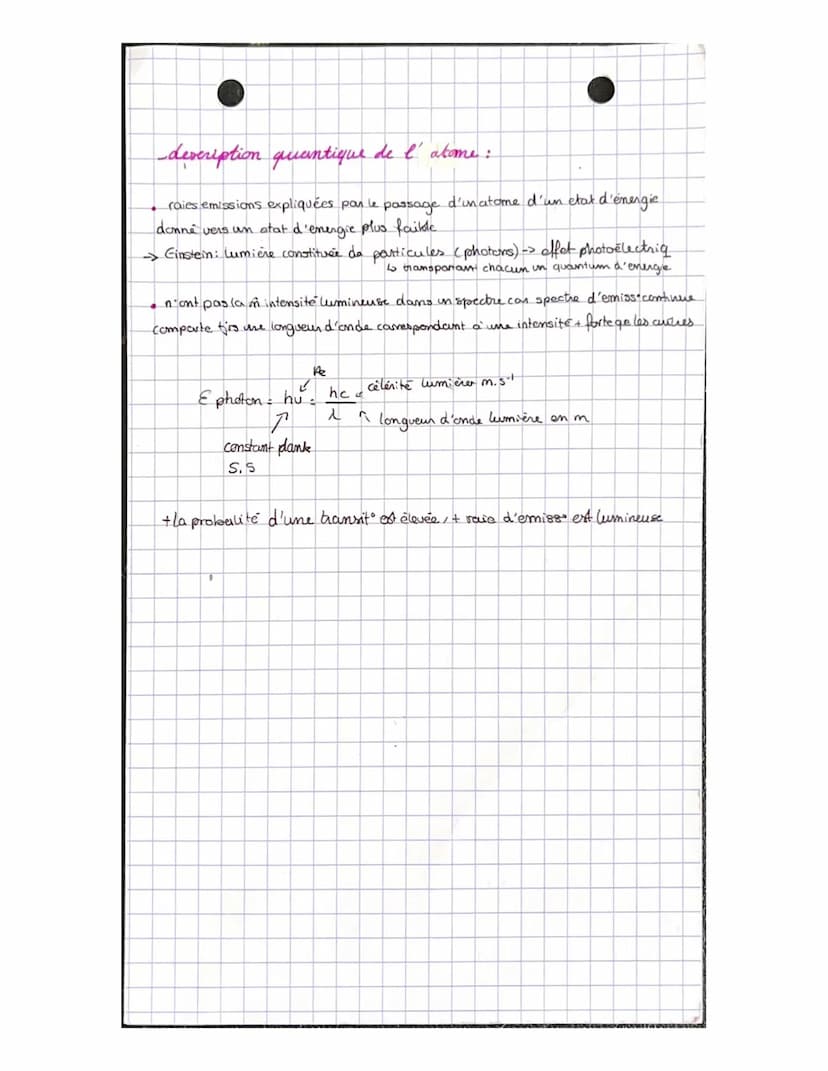 -description quantique de l'atome :
• raies emissions expliquées par le passage d'un atome d'un etat d'énergie
donné vers un etat d'energie plus faible
-> Einstein: lumière constituée de particules (photons) -> effet photoélectriq
↳ transportant chacun un quantum d'energie
• n'ont pas la m̂ intensité lumineuse dans un spectre car spectre d'emiss° continue
comporte tjrs une longueur d'onde correspondant à une intensité + forte qe les autres
célérité lumière m.s⁻¹
E photon = hν = hc/λ
longueur d'onde lumière en m
constant plank
+ la probalité d'une transit° est élevée, + raie d'emiss° est lumineuse